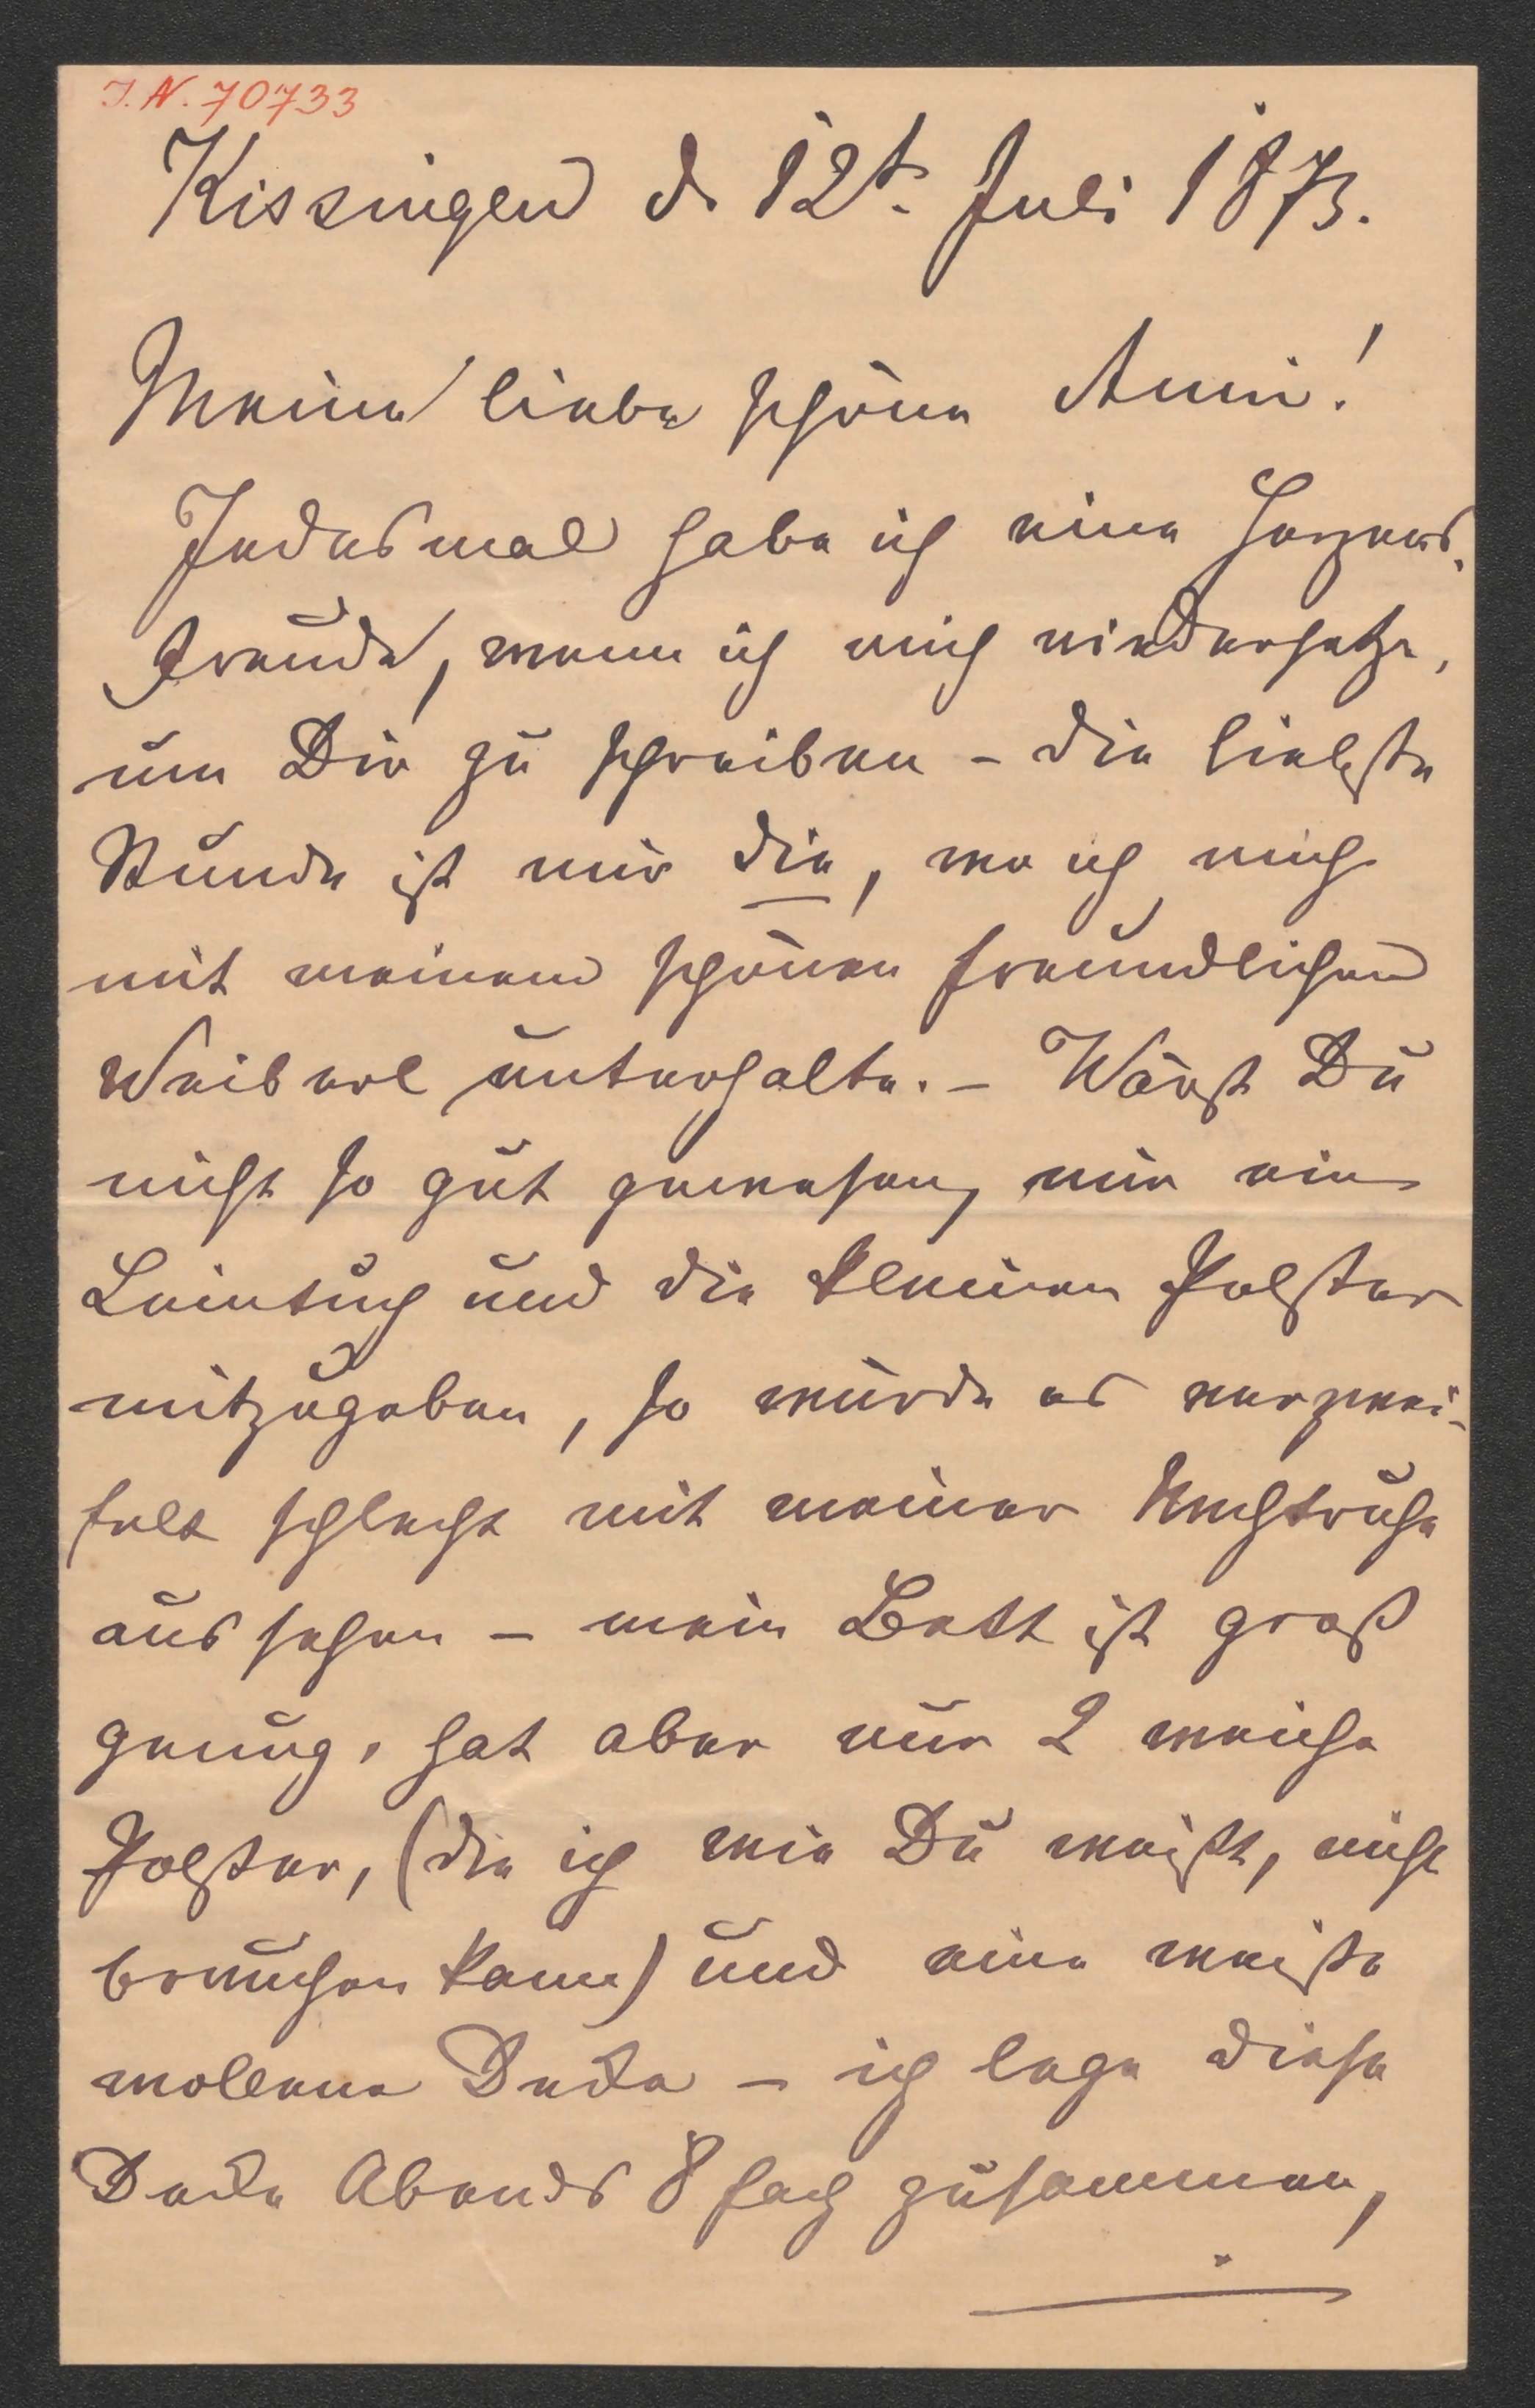 I. N. 70733
Kissingen d. 12t. Juli 1873.
Meine liebe schöne Anni!
Jedesmal habe ich eine Herzens-
freude, wenn ich mich niedersetze,
um Dir zu schreiben – die liebste
Stunde ist mir die, wo ich mich
mit meinem schönen freundlichen
Weiberl unterhalte. – Wärst Du
nicht so gut gewesen, mir ein
Leintuch und die kleinen Polster
mitzugeben, so würde es verzwei-
felt schlecht mit meiner Nachtruhe
aussehen – mein Bett ist groß
genug, hat aber nur 2 weiche
Polster, (die ich wie Du weißt, nicht
brauchen kann) und eine weiße
wollene Decke – ich lege diese
Decke Abends 8fach zusammen,